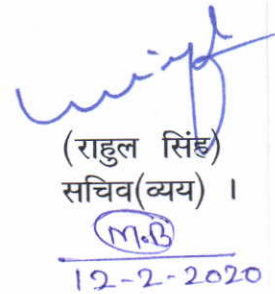 (राहुल सिंह)
सचिव(व्यय) ।
M.B
12-2-2020